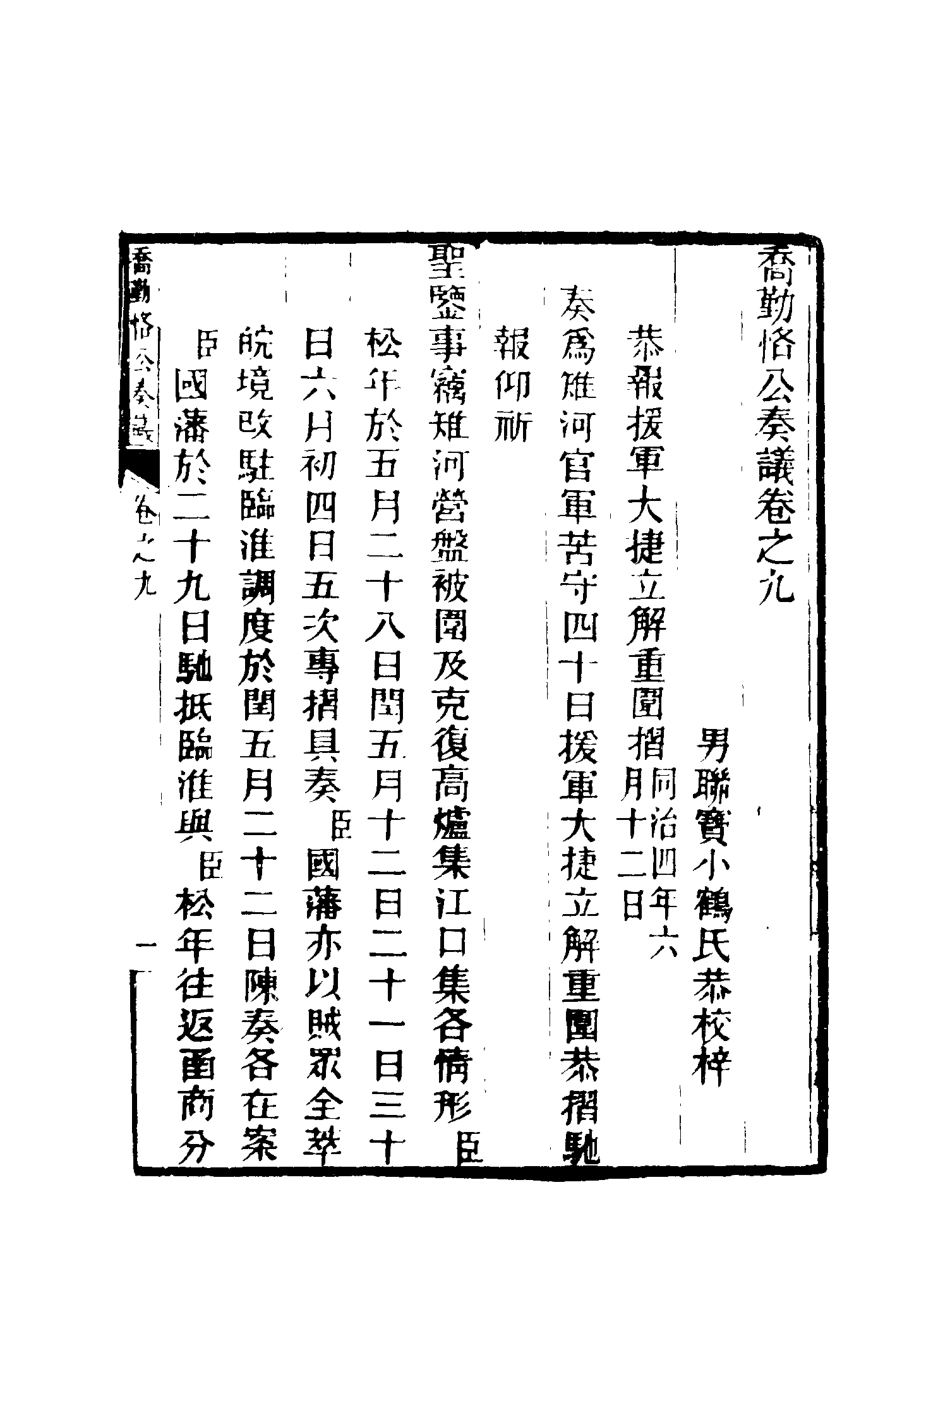 喬勤恪公奏議卷之九
男聯寶小鶴氏恭校梓
恭報援軍大捷立解重圍摺同治四年六月十二日
奏爲雉河官軍苦守四十日援軍大捷立解重圍恭摺馳
報仰祈
聖鑒事竊雉河營盤被圍及克復高爐集江口集各情形臣
松年於五月二十八日閏五月十二日二十一日三十
日六月初四日五次專摺具奏臣國藩亦以賊眾全萃
皖境改駐臨淮調度於閏五月二十二日陳奏各在案
臣國藩於二十九日馳抵臨淮與臣松年往返函商分
喬勤恪公奏議 卷之九 一